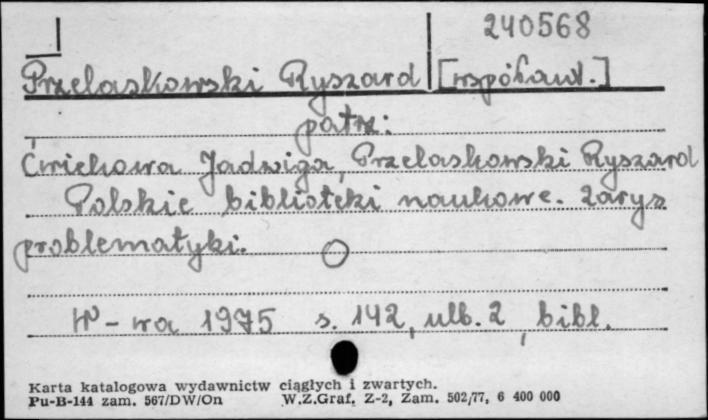 240568
Przelaskowski Ryszard [współaut.]
patrz:
Ćwiekowa Jadwiga, Przelaskowski Ryszard
Polskie biblioteki naukowe. Zarys
problematyki.
W-wa 1975 s. 142, ulb. 2, bibl.
Karta katalogowa wydawnictw ciągłych i zwartych.
Pu-B-144 zam. 567/DW/On W.Z.Graf. Z-2, Zam. 502/77, 6 400 000